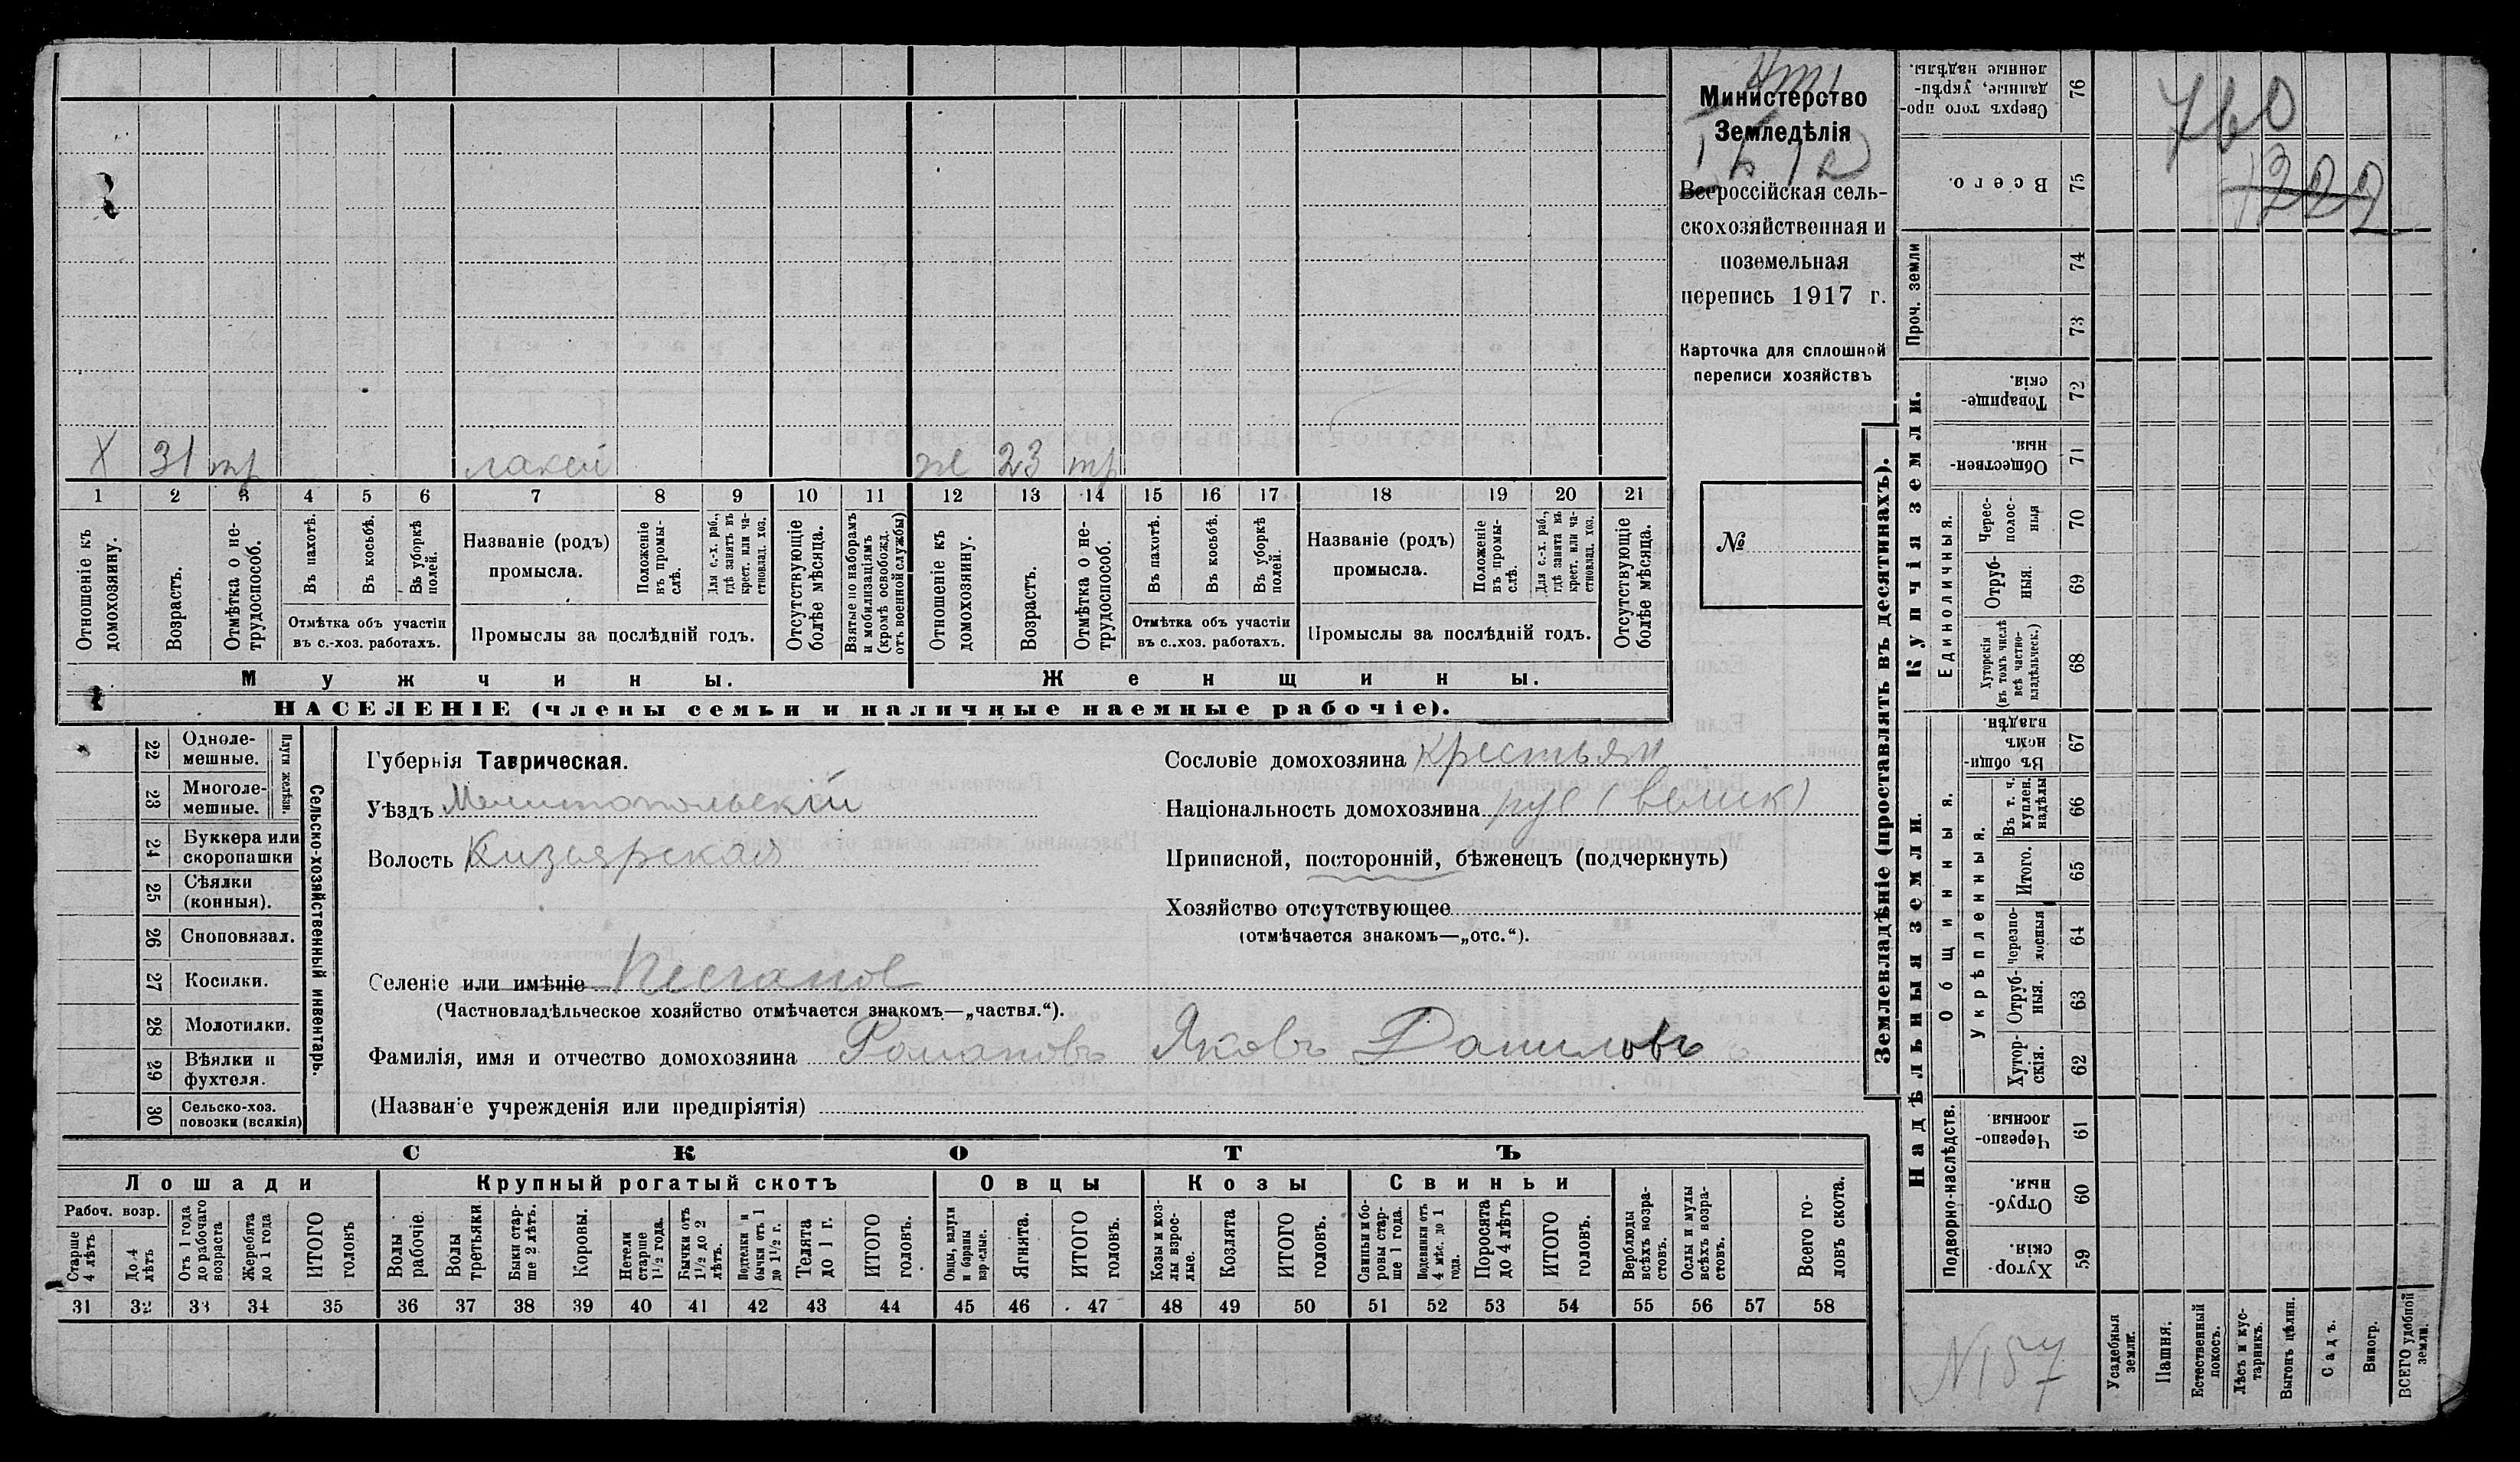 Министерство
Земледѣлія
Всероссійская сель-
скохозяйственная и
поземельная
перепись 1917 г.
Карточка для сплошной
переписи хозяйствъ
№
X 31 тр лакей ж 23 тр
1 2 3 4 5 6 7 8 9 10 11 12 13 14 15 16 17 18 19 20 21
Отношеніе къ домохозяину.
Возрастъ.
Отмѣтка о не-трудоспособ.
Въ пахотѣ.
Въ косьбѣ.
Въ уборкѣ полей.
Отмѣтка объ участіи
въ с.-хоз. работахъ.
Названіе (родъ)
промысла.
Положеніе въ промы-слѣ.
Для с.-х. раб., гдѣ занятъ въ крест. или ча-стновлад. хоз.
Промыслы за послѣдній годъ.
Отсутствующіе болѣе мѣсяца.
Взятые по наборамъ и мобилизаціямъ (кромѣ освобожд. отъ военной службы)
Отношеніе къ домохозяину.
Возрастъ.
Отмѣтка о не-трудоспособ.
Въ пахотѣ.
Въ косьбѣ.
Въ уборкѣ полей.
Отмѣтка объ участіи
въ с..хоз. работахъ.
Названіе (родъ)
промысла.
Положеніе въ промы-слѣ.
Для с.-х. раб., гдѣ занята въ крест. или ча-стновлад. хоз.
Промыслы за послѣдній годъ.
Отсутствующіе болѣе мѣсяца.
Мужчины. Женщины.
НАСЕЛЕНІЕ (члены семьи и наличные наемные рабочіе).
22 Одноле-мешные.
23 Многоле-мешные.
Плуги желѣзн.
24 Буккера или скоропашки
25 Сѣялки (конныя).
26 Сноповязал.
27 Косилки.
28 Молотилки.
29 Вѣялки и фухтеля.
30 Сельско-хоз. повозки (всякія)
Сельско-хозяйственный инвентарь.
Губернія Таврическая.
Уѣздъ Мелитопольскій
Волость Кизіярская
Сословіе домохозяина крестьян
Національность домохозяина рус (велик)
Приписной, посторонній, бѣженецъ (подчеркнуть)
Хозяйство отсутствующее
(отмѣчается знакомъ—„отс.“).
Селеніе или имѣніе
(Частновладѣльческое хозяйство отмѣчается знакомъ—„частвл.“).
Фамилія, имя и отчество домохозяина Романовъ Яковъ Даниловъ
(Названіе учрежденія или предпріятія)
СКОТЪ
Лошади Крупный рогатый скотъ Овцы Козы Свиньи
Рабоч. возр.
Старше 4 лѣтъ
До 4 лѣтъ
Отъ 1 года до рабочаго возраста
Жеребята до 1 года
ИТОГО головъ
Волы рабочіе.
Волы третьяки
Быки стар-ше 2 лѣтъ.
Коровы.
Нетели старше 1½ года.
Бычки отъ 1½ до 2 лѣтъ.
Подтелки и бычки отъ 1 до 1½ г.
Телята до 1 г.
ИТОГО головъ.
Овцы, валухи и бараны взрослые.
Ягнята.
ИТОГО головъ.
Козы и коз-лы взрос-лые.
Козлята
ИТОГО головъ.
Свиньи и бо-ровы стар-ше 1 года.
Подсвинки отъ 4 мѣс. до 1 года.
Поросята до 4 лѣтъ
ИТОГО головъ.
Верблюды всѣхъ возра-стовъ.
Ослы и мулы всѣхъ возра-стовъ.
Всего го-ловъ скота.
31 32 33 34 35 36 37 38 39 40 41 42 43 44 45 46 47 48 49 50 51 52 53 54 55 56 57 58
Землевладѣніе (проставлять въ десятинахъ).
Купчія земли.
Надѣльныя земли.
76 Сверхъ того про-данные, укрѣп-ленные надѣлы.
75 Всего.
Проч. земли
74
73
72 Товарище-скія.
71 Обществен-ныя.
Единоличныя.
70 Черес-полос-ныя
69 Отруб-ныя.
68 Хуторскія (въ томъ числѣ всѣ частно-владѣльческ.)
Общинныя.
67 Въ общи-номъ владѣн.
Укрѣпленныя.
66 Въ т. ч. куплен. надѣлы
65 Итого.
64 Черезпо-лосныя
63 Отруб-ныя.
62 Хутор-скія.
Подворно-наслѣдств.
61 Черезпо-лосныя
60 Отруб-ныя.
59 Хутор-скія.
Усадебныя земли.
Пашня.
Естественный покосъ.
Лѣсъ и кус-тарникъ.
Выгонъ цѣлин.
Садъ.
Виногр.
ВСЕГО удобной земли.
760
1222
N 157